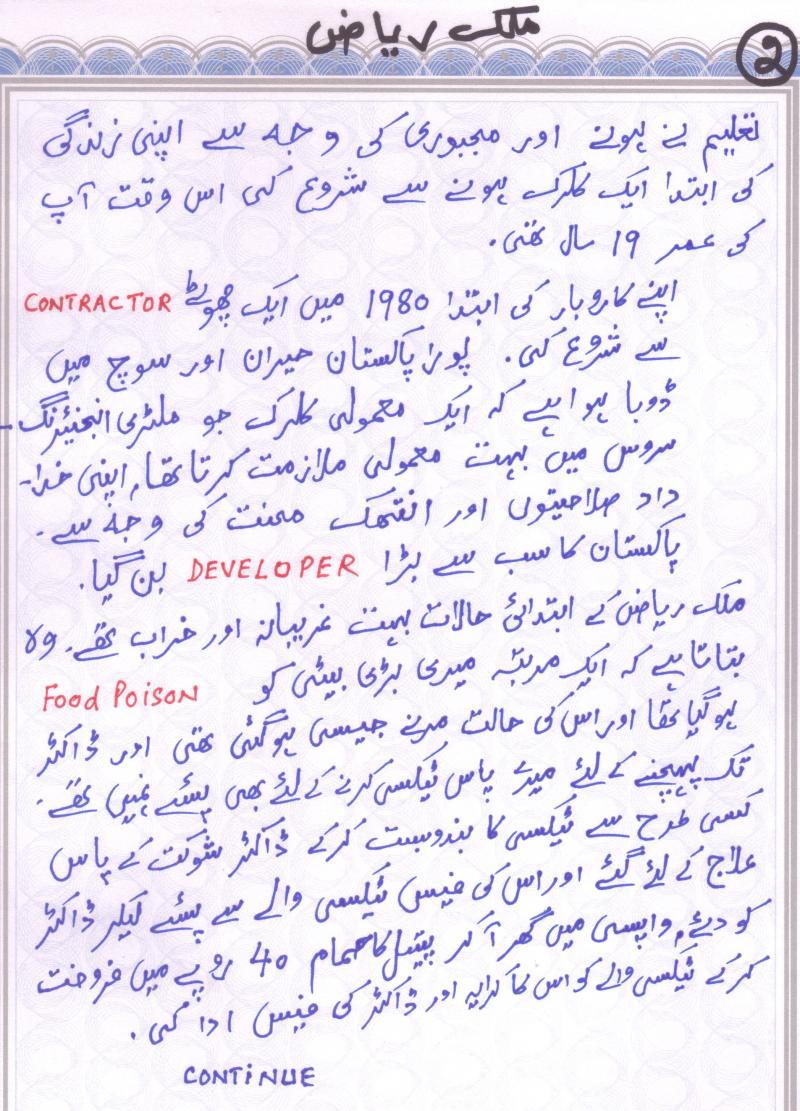 ملک ریاض
2
تعلیم نے ہونے اور مجبوری کی وجہ سے اپنی زندگی
کی ابتدا ایک کلرک ہونے سے شروع کی اس وقت آپ
کی عمر 19 سال تھی.
اپنے کاروبار کی ابتدا 1980 میں ایک چھوٹے CONTRACTOR
سے شروع کی. پورا پاکستان حیران اور سوچ میں
ڈوبا ہوا ہے کہ ایک معمولی کلرک جو ملٹری انجنیئرنگ-
سروس میں بہت معمولی ملازمت کرتا تھا, اپنی خدا-
داد صلاحیتوں اور انتھک محنت کی وجہ سے.
پاکستان کا سب سے بڑا DEVELOPER بن گیا.
ملک ریاض کے ابتدائی حالات بہت غریبانہ اور خراب تھے. وہ
بتاتا ہے کہ ایک مرتبہ میری بڑی بیٹی کو Food Poison
ہو گیا تھا اور اس کی حالت مرنے جیسی ہو گئی تھی اور ڈاکٹر
تک پہچنے کے لئے میرے پاس ٹیکسی کرنے کے لئے بھی پسئے نہیں تھے.
کسی طرح سے ٹیکسی کا بندوبست کرکے ڈاکٹر شوکت کے پاس
علاج کے لئے گئے اور اس کی فیس ٹیکسی والے سے پسئے لیکر ڈاکٹر
کو دئے, واپسی میں گھر آ کر پیتل کا حمام 40 روپے میں فروخت
کرکے ٹیکسی والے کو اس کا کرایہ اور ڈاکٹر کی فیس ادا کی.
CONTINUE